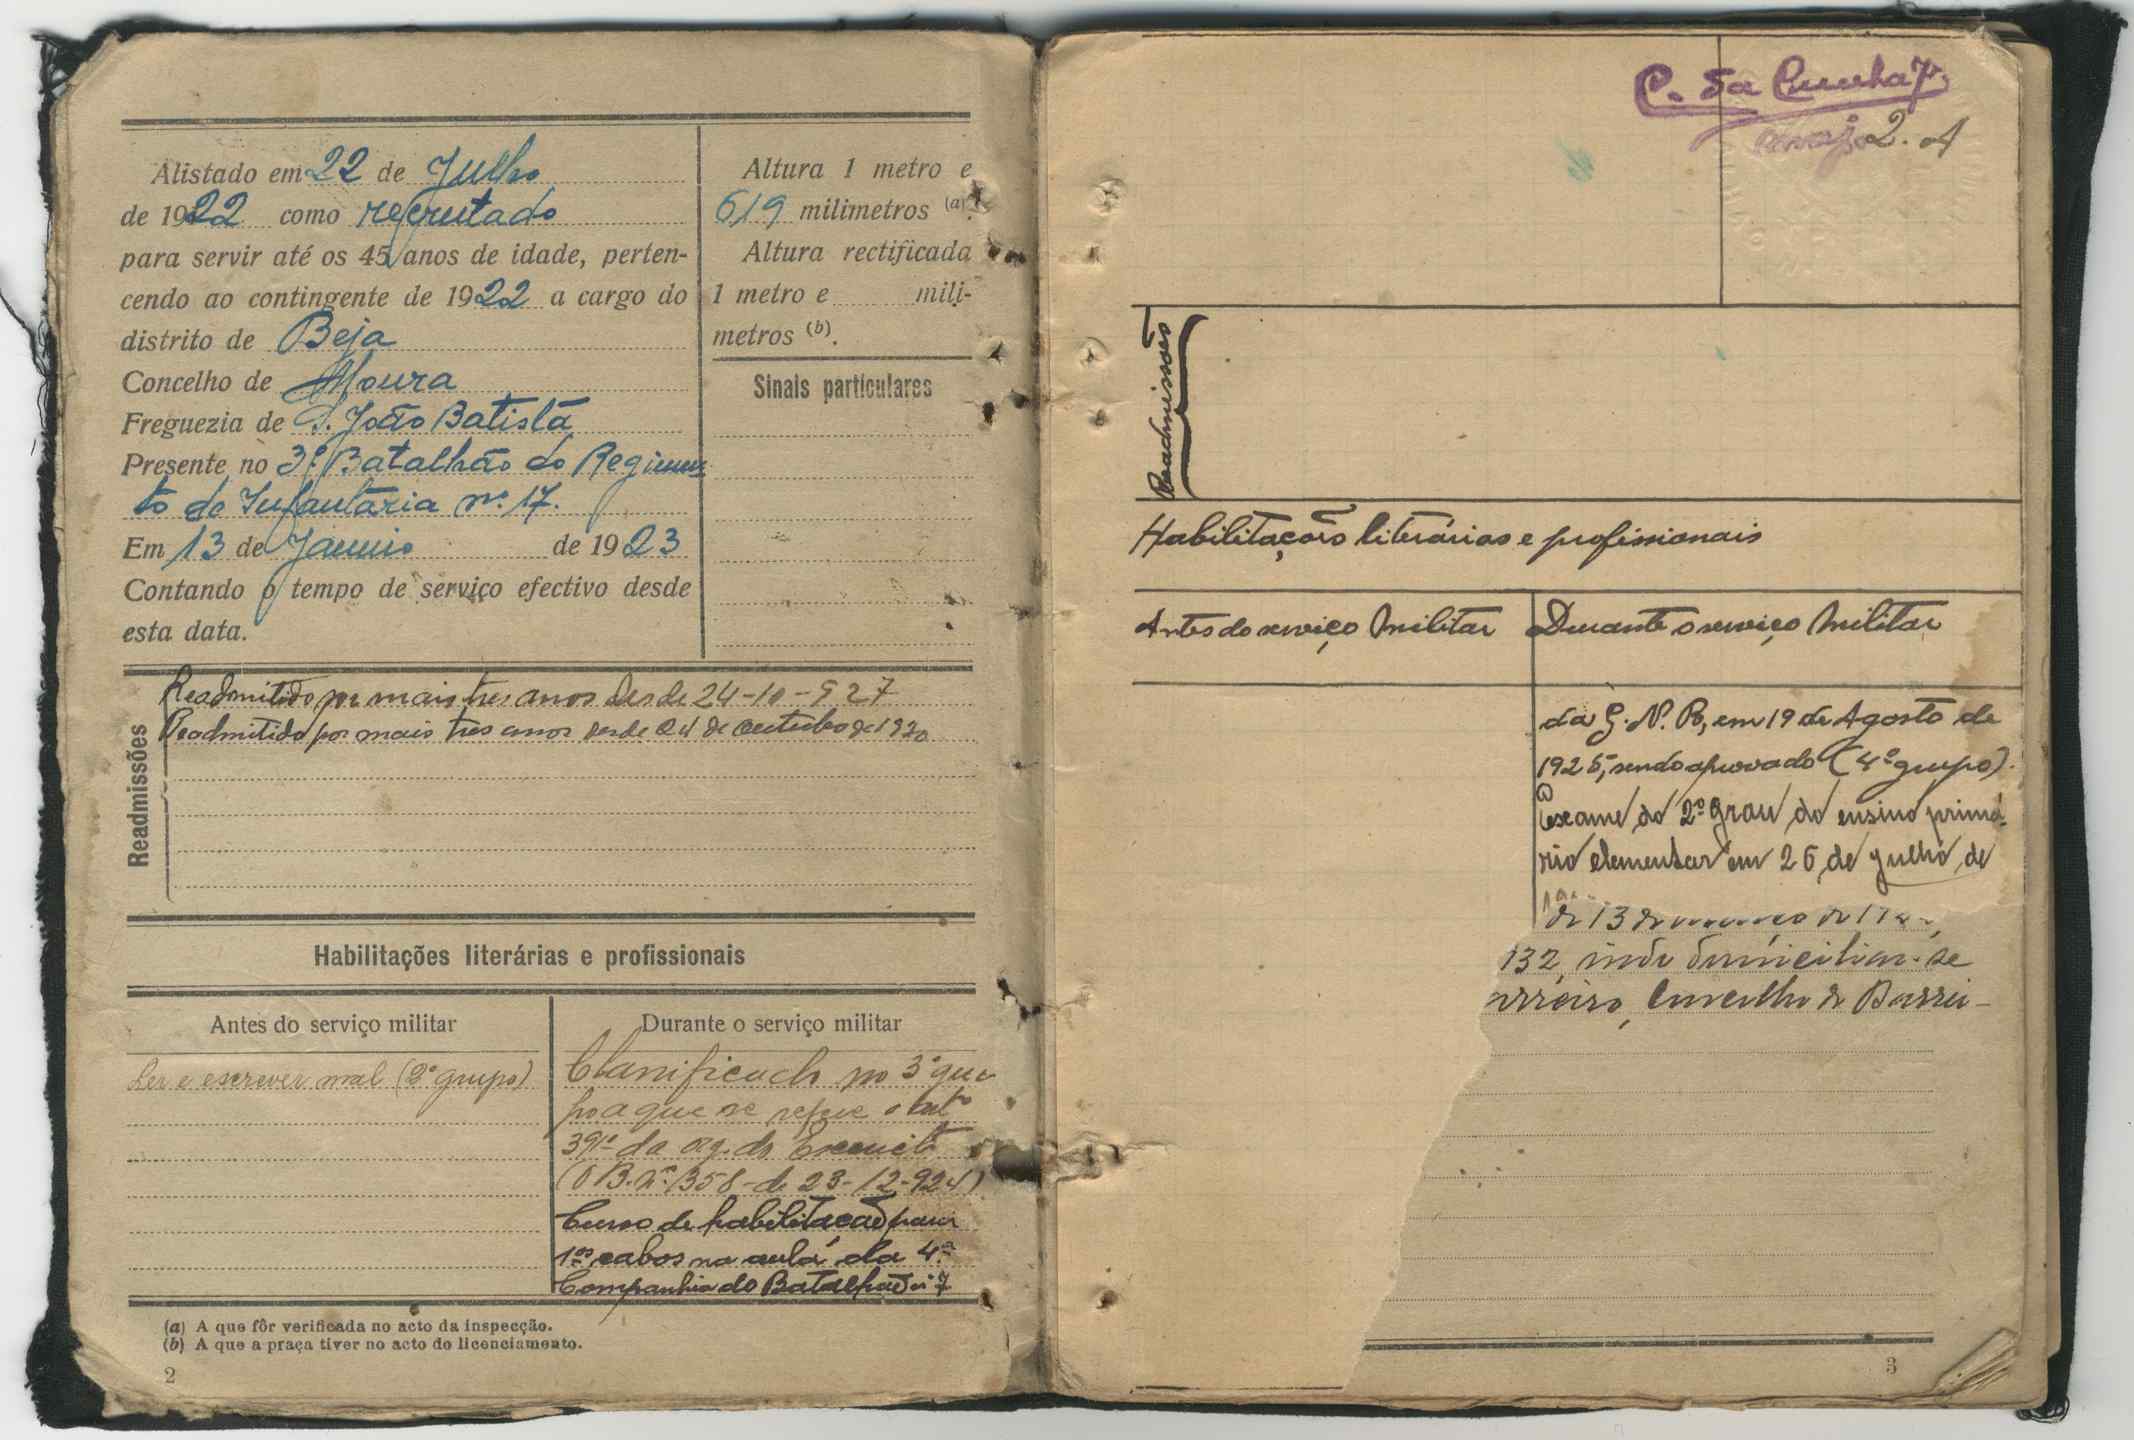 Alistado em 22 de Julho
de 1922 como recrutado
para servir até os 45 anos de idade, perten-
cendo ao contingente de 1922 a cargo do
distrito de Beja
Concelho de Moura
Freguezia de S. João Batista
Presente no 3º Batalhão do Regimen
to de Infantaria nº 17.
Em 13 de Janeiro de 1923
Contando o tempo de serviço efectivo desde
esta data.
Altura 1 metro e
619 milimetros (a).
Altura rectificada
1 metro e mili-
metros (b).
Sinais particulares
Readmissões
Readmitido por mais tres anos desde 24-10-927
Readmitido por mais tres anos desde 24 de outubro de 1930
Habilitações literárias e profissionais
Antes do serviço militar
Ler e escrever mal (2º grupo)
Durante o serviço militar
Classificado no 3º gru
po a que se refere o
da do Exercito
(O B. nº 358 de 23-12-924)
Curso de habilitação para
1os cabos na aula da 4ª
Companhia do Batalhão nº 7
(a) A que fôr verificada no acto da inspecção.
(b) A que a praça tiver no acto do licenciamento.
2
C. da Cunha
2. A
Readmissões
Habilitações literárias e profissionais
Antes do serviço Militar
Durante o serviço Militar
da G. N. R, em 19 de Agosto de
1925, sendo aprovado (4º grupo).
Exame do 2º grau do ensino primá-
rio elementar em 26 de Julho de
de 13 de março de
132, indo domiciliar-se
arreiro, Concelho de Barrei-
3